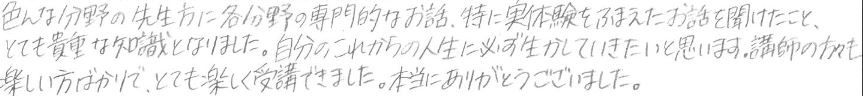 色んな分野の先生方に各分野の専門的なお話、特に実体験をふまえたお話を聞けたこと、
とても貴重な知識となりました。自分のこれからの人生に必ず生かしていきたいと思います。講師の方々も
楽しい方ばかりで、とても楽しく受講できました。本当にありがとうございました。